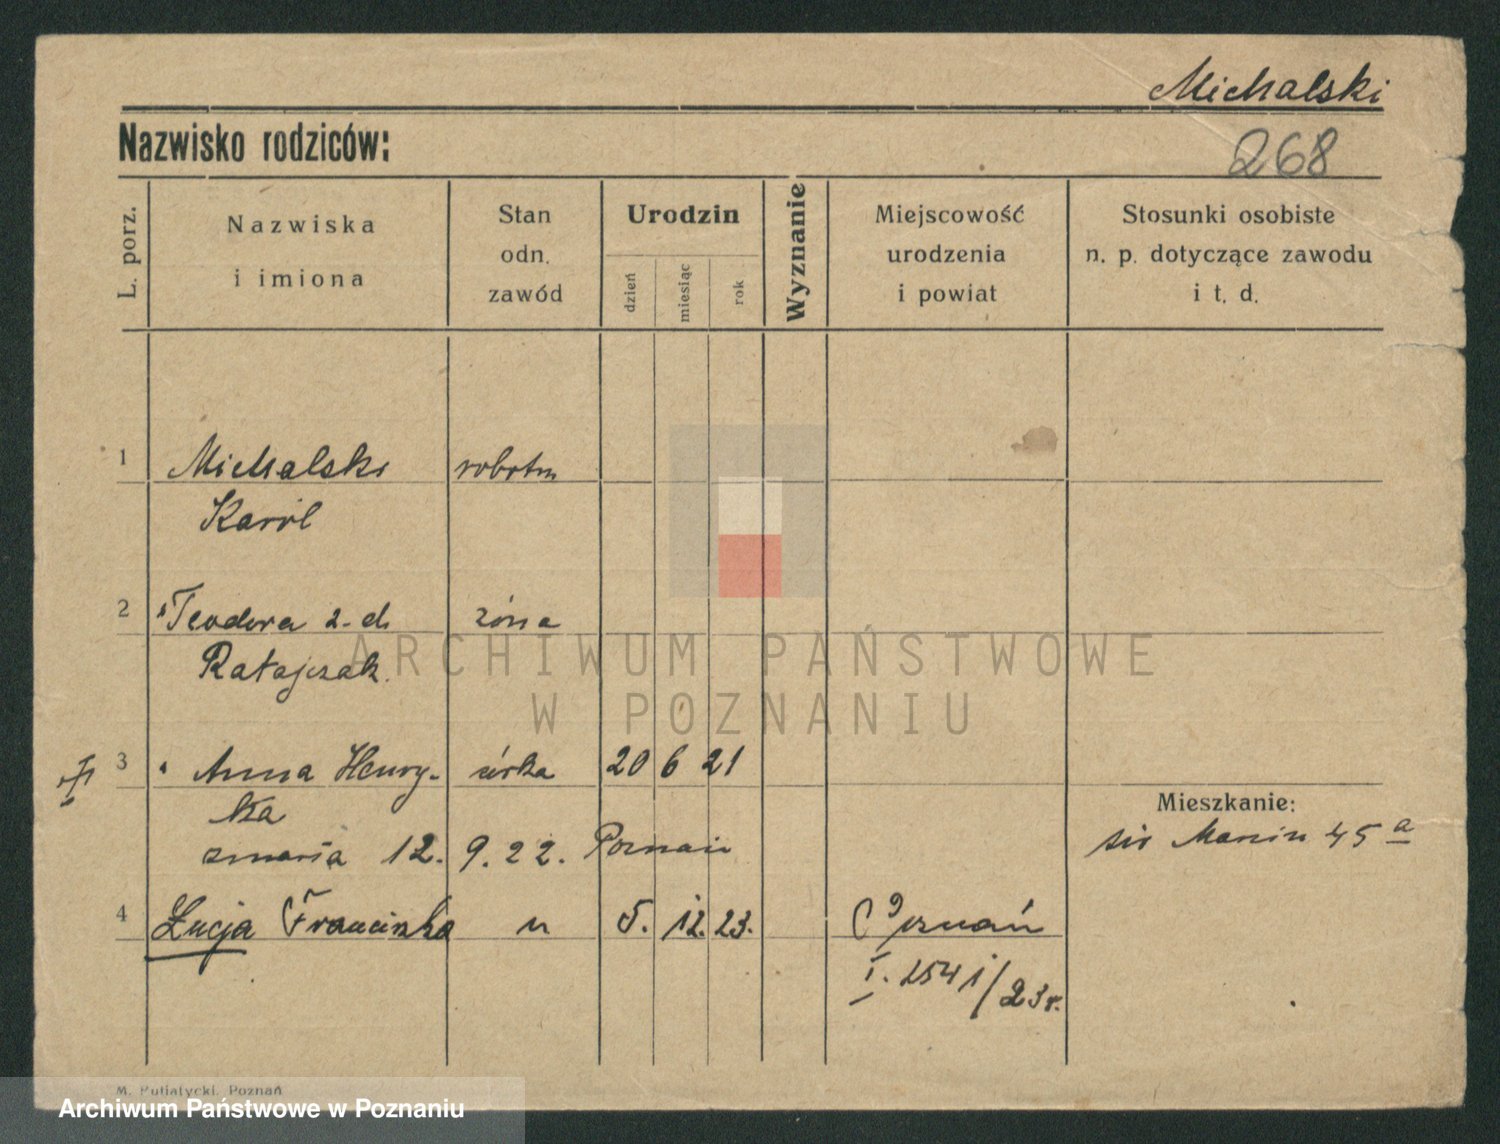 Michalski
Nazwisko rodziców:
268
L. porz.
Nazwiska
i imiona
Stan
odn.
zawód
Urodzin
dzień
miesiąc
rok
Wyznanie
Miejscowość
urodzenia
i powiat
Stosunki osobiste
n. p. dotyczące zawodu
i t. d.
1 Michalski robotn
Karol
2 Teodora z d. żona
Ratajczak.
ARCHIWUM PAŃSTWOWE
W POZNANIU
3 Anna Henry- córka 20 6 21
ka
Mieszkanie:
zmarła 12. 9. 22. Poznań
Marcin 45 a
4 Łucja Franciszka " 5. 12. 23. Poznań
I. 2541/23 r.
M. Putiatycki, Poznań
Archiwum Państwowe w Poznaniu